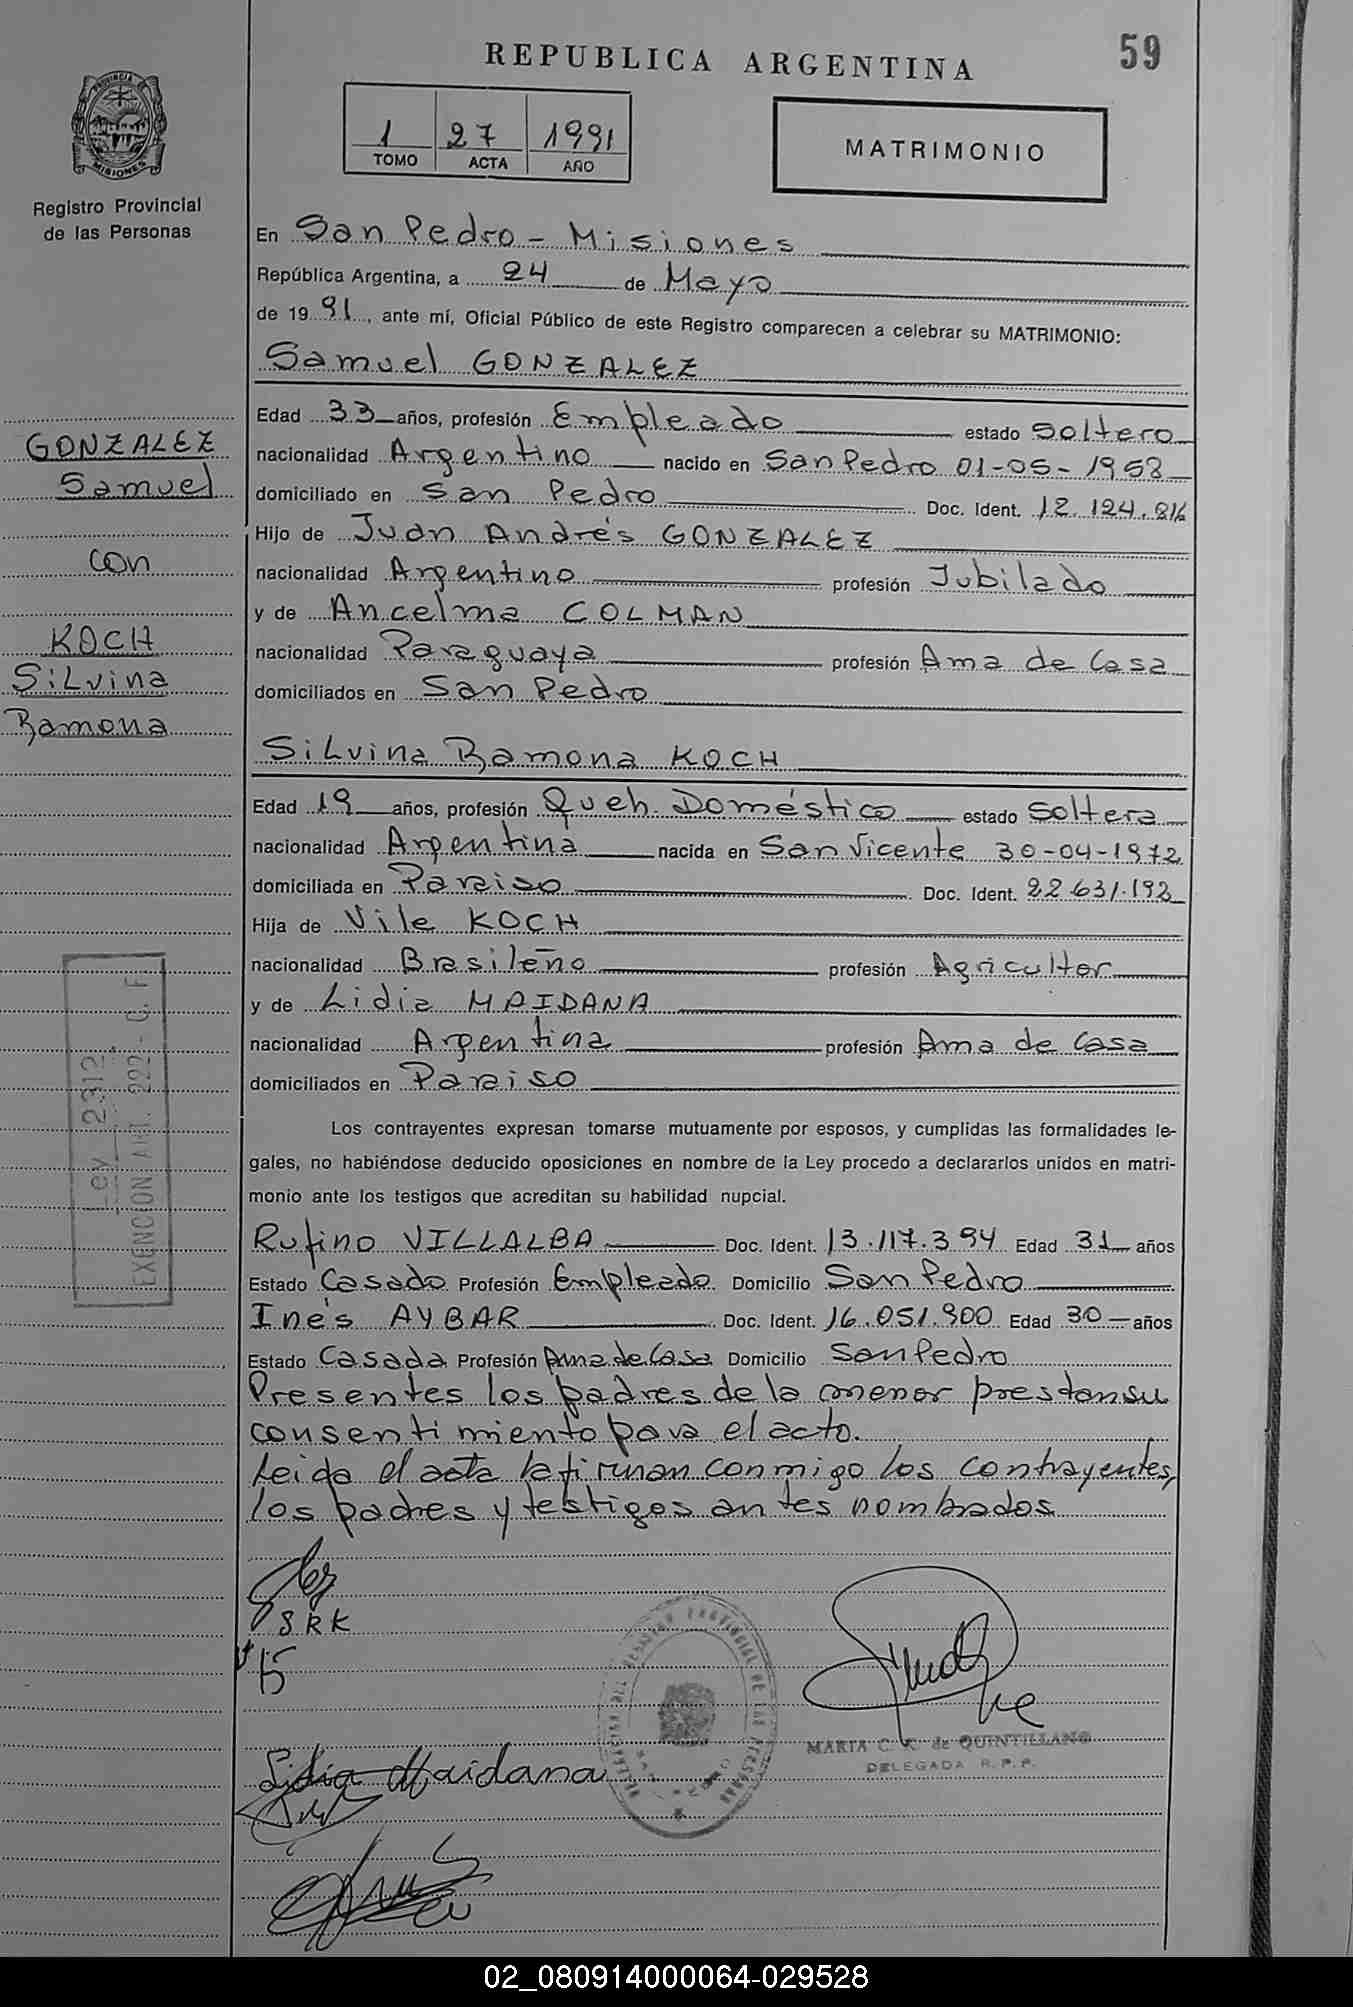 59
REPUBLICA ARGENTINA
PROVINCIA DE
MISIONES
Registro Provincial
de las Personas
1 27 1991
TOMO ACTA AÑO
MATRIMONIO
En San Pedro - Misiones
República Argentina, a 24 de Mayo
de 1991, ante mí, Oficial Público de este Registro comparecen a celebrar su MATRIMONIO:
Samuel GONZALEZ
Edad 33 años, profesión Empleado estado Soltero
nacionalidad Argentino nacido en San Pedro 01-05-1958
domiciliado en San Pedro Doc. Ident. 12.124.816
Hijo de Juan Andrés GONZALEZ
nacionalidad Argentino profesión Jubilado
y de Ancelma COLMAN
nacionalidad Paraguaya profesión Ama de Casa
domiciliados en San Pedro
GONZALEZ
Samuel
con
KOCH
Silvina
Ramona
Silvina Ramona KOCH
Edad 19 años, profesión Queh. Doméstico estado Soltera
nacionalidad Argentina nacida en San Vicente 30-04-1972
domiciliada en Paraiso Doc. Ident. 22.631.192
Hija de Vile KOCH
nacionalidad Brasileño profesión Agricultor
y de Lidia MAIDANA
nacionalidad Argentina profesión Ama de Casa
domiciliados en Paraiso
Ley 2312
EXENCION ART. 222 - C. F
Los contrayentes expresan tomarse mutuamente por esposos, y cumplidas las formalidades le-
gales, no habiéndose deducido oposiciones en nombre de la Ley procedo a declararlos unidos en matri-
monio ante los testigos que acreditan su habilidad nupcial.
Rufino VILLALBA Doc. Ident. 13.117.394 Edad 31 años
Estado Casado Profesión Empleado Domicilio San Pedro
Inés AYBAR Doc. Ident. 16.051.900 Edad 30 años
Estado Casada Profesión Ama de Casa Domicilio San Pedro
Presentes los padres de la menor prestan su
consentimiento para el acto.
Leida el acta la firman conmigo los contrayentes,
los padres y testigos antes nombrados
SRK
Lidia Maidana
MARIA C. K. de QUINTILLANO
DELEGADA R.P.P.
02_080914000064-029528